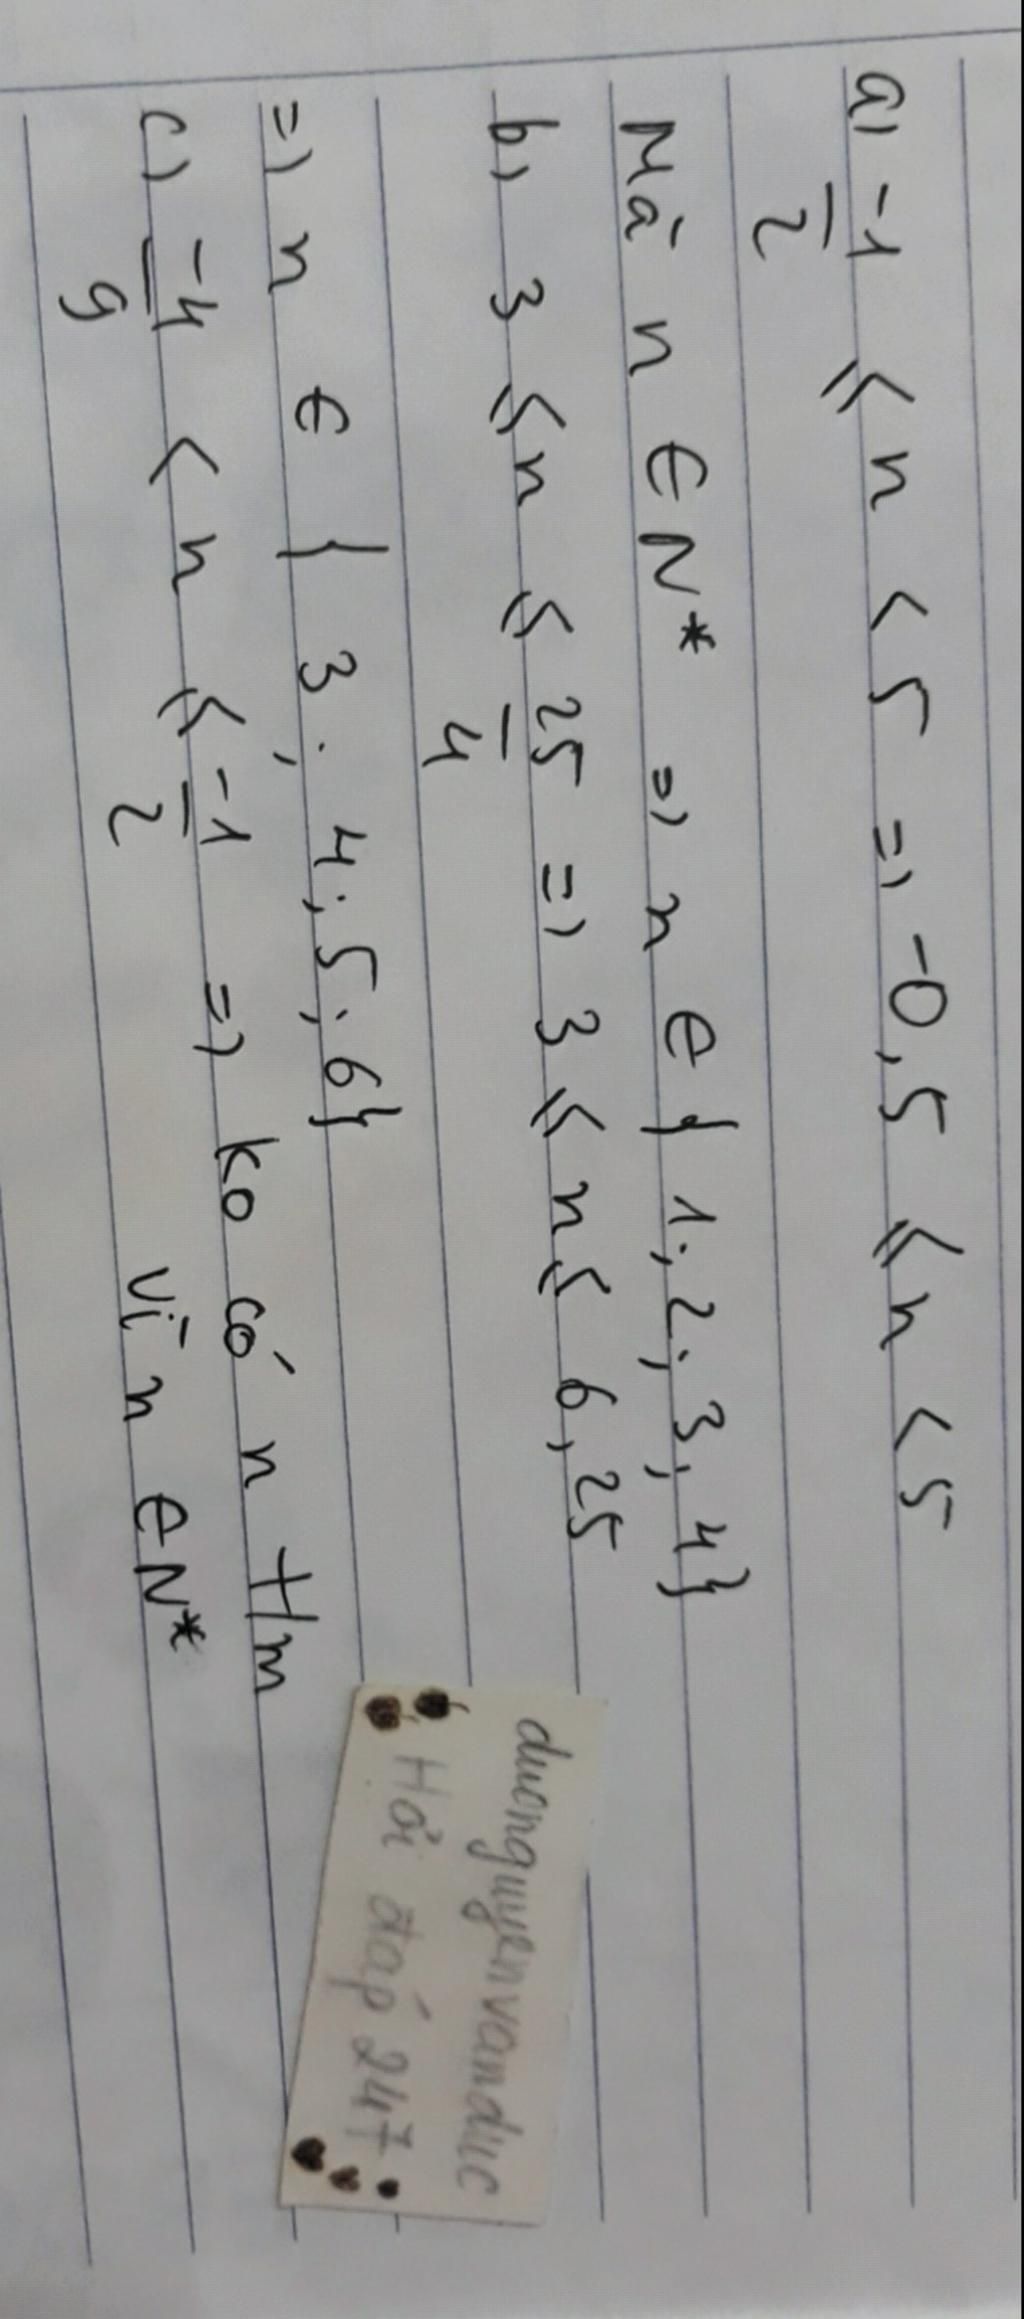 a) -1/2 ≤ n < 5 => -0,5 ≤ n < 5
Mà n ∈ N* => n ∈ {1; 2; 3; 4}
b) 3 ≤ n ≤ 25/4 => 3 ≤ n ≤ 6,25
=> n ∈ {3; 4; 5; 6}
c) -4/9 < n ≤ -1/2 => ko có n t/m
vì n ∈ N*
duongquyenvanduc
Hỏi đáp 247